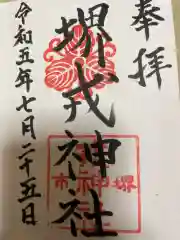 奉拝
堺戎神社
令和五年七月二十五日